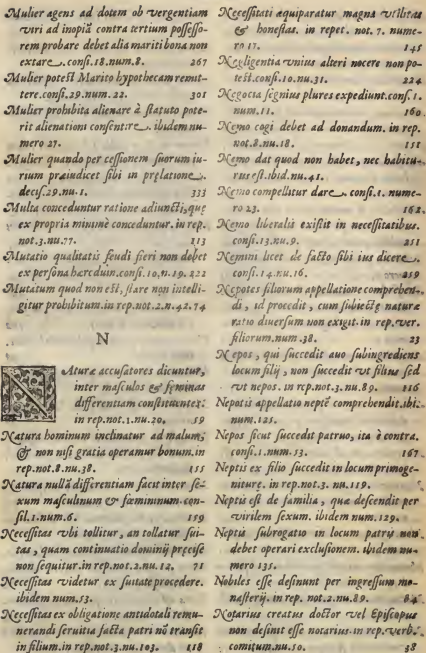 Mulier agens ad dotem ob vergentiam
viri ad inopiã contra tertium possesso-
rem probare debet alia mariti bona non
extare. consi.18.num.8. 267
Mulier potest Marito hypothecam remit-
tere.consi.29.num.22. 301
Mulier prohibita alienare à statuto pote-
rit alienationi consentire. ibidem nu-
mero 27.
Mulier quando per cessionem suorum iu-
rium praeiudicet sibi in prelatione.
decis.29.nu.1. 333
Multa conceduntur ratione adiuncti, que
ex propria minimè conceduntur. in rep.
not.3.nu.77. 113
Mutatio qualitatis feudi fieri non debet
ex persona haeredũ in consi.10.n.19. 222
Mutatum quod non est, stare non intelli-
gitur prohibitum.in rep.not.2.n.42. 74
N
NAturæ accusatores dicuntur,
inter masculos & feminas
differentiam constituentes.
in rep.not.1.nu.20. 59
Natura hominum inclinatur ad malum,
& non nisi gratia operamur bonum.in
rep.not.8.nu.38. 155
Natura nullã differentiam facit inter se-
xum masculinum & fœmininum. con-
sil.1.num.6. 159
Necessitas vbi tollitur, an tollatur sui-
tas, quam continuatio dominij precisè
non sequitur.in rep.not.2.nu.12. 71
Necessitas videtur ex suitate procedere.
ibidem num.53.
Necessitas ex obligatione antidotali remu-
nerandi seruitia facta patri nõ transit
in filium.in rep.not.3.nu.103. 118
Necessitati æquiparatur magna vtilitas
& honestas. in repet. not. 7. nume-
ro 17. 145
Negligentia vnius alteri nocere non po-
test.consi.10.nu.31. 224
Negocia segnius plures expediunt.consi.1.
num.11. 160
Nemo cogi debet ad donandum. in rep.
not.8.nu.18. 151
Nemo dat quod non habet, nec habitu-
rus est.ibid.nu.41.
Nemo compellitur dare. consi.1. nume-
ro 23. 162
Nemo liberalis existit in necessitatibus.
consi.13.nu.9. 251
Nemini licet de facto sibi ius dicere.
consi.14.nu.16. 259
Nepotes filiorum appellatione comprehen-
di, id procedit, cum subiectę naturæ
ratio diuersum non exigit. in rep.ver.
filiorum.num.38. 23
Nepos, qui succedit auo subingrediens
locum filij, non succedit vt filius sed
vt nepos. in rep.not.3.nu.89. 116
Nepotis appellatio neptẽ comprehendit.ibi.
num.125.
Nepos sicut succedit patruo, ita è contra.
consi.1.num.53. 167
Neptis ex filio succedit in locum primoge-
niture. in rep.not.3. nu.119.
Neptis est de familia, quæ descendit per
virilem sexum. ibidem num.129.
Neptis subrogatio in locum patris non
debet operari exclusionem. ibidem nu-
mero 135.
Nobiles esse desinunt per ingressum mo-
nasterij. in rep. not.2.nu.89. 84
Notarius creatus doctor vel Episcopus
non desinit esse notarius.in rep.verb.
comitum.nu.50. 38